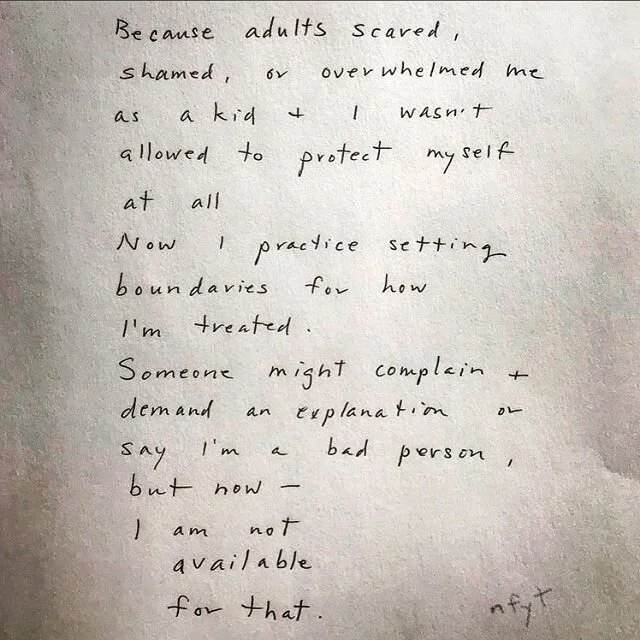 Because adults scared,
shamed, or overwhelmed me
as a kid + I wasn't
allowed to protect myself
at all
Now I practice setting
boundaries for how
I'm treated.
Someone might complain +
demand an explanation or
say I'm a bad person,
but now —
I am not
available
for that.
nfyt